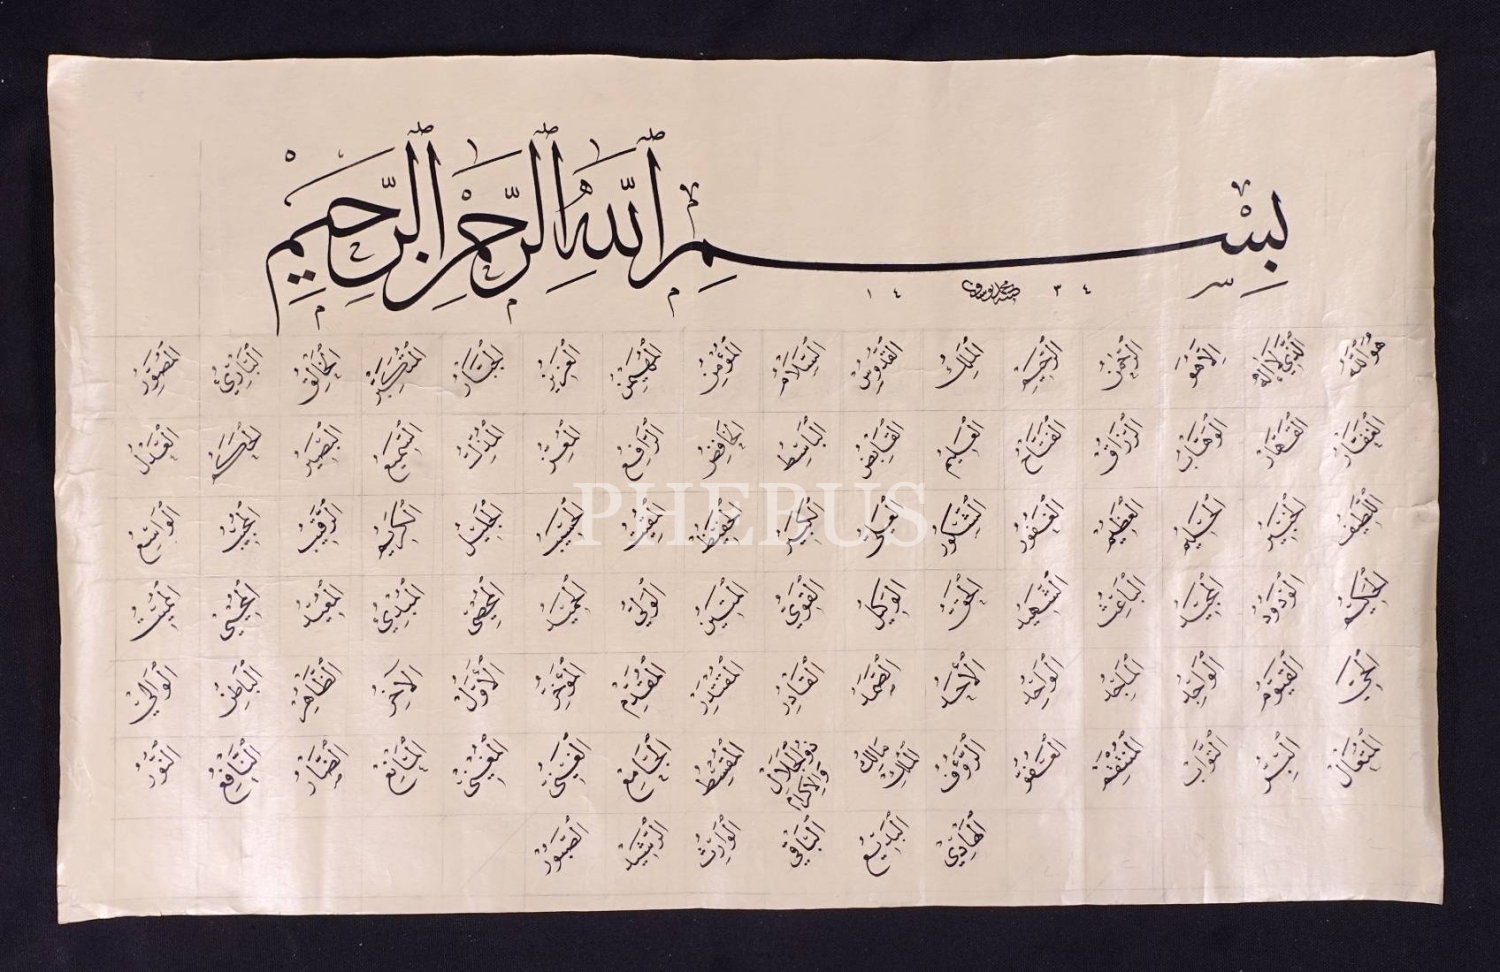 بِسْمِ ٱللَّهِ ٱلرَّحْمَٰنِ ٱلرَّحِيمِ
١٤ ٣٤
هُوَ ٱللَّهُ ٱلَّذِي لَا إِلَٰهَ إِلَّا هُوَ ٱلرَّحْمَٰنُ ٱلرَّحِيمُ ٱلْمَلِكُ ٱلْقُدُّوسُ ٱلسَّلَامُ ٱلْمُؤْمِنُ ٱلْمُهَيْمِنُ ٱلْعَزِيزُ ٱلْجَبَّارُ ٱلْمُتَكَبِّرُ ٱلْخَالِقُ ٱلْبَارِئُ ٱلْمُصَوِّرُ
ٱلْغَفَّارُ ٱلْقَهَّارُ ٱلْوَهَّابُ ٱلرَّزَّاقُ ٱلْفَتَّاحُ ٱلْعَلِيمُ ٱلْقَابِضُ ٱلْبَاسِطُ ٱلْخَافِضُ ٱلرَّافِعُ ٱلْمُعِزُّ ٱلْمُذِلُّ ٱلسَّمِيعُ ٱلْبَصِيرُ ٱلْحَكَمُ ٱلْعَدْلُ
ٱللَّطِيفُ ٱلْخَبِيرُ ٱلْحَلِيمُ ٱلْعَظِيمُ ٱلْغَفُورُ ٱلشَّكُورُ ٱلْعَلِيُّ ٱلْكَبِيرُ ٱلْحَفِيظُ ٱلْمُقِيتُ ٱلْحَسِيبُ ٱلْجَلِيلُ ٱلْكَرِيمُ ٱلرَّقِيبُ ٱلْمُجِيبُ ٱلْوَاسِعُ
PHEBUS
ٱلْحَكِيمُ ٱلْوَدُودُ ٱلْمَجِيدُ ٱلْبَاعِثُ ٱلشَّهِيدُ ٱلْحَقُّ ٱلْوَكِيلُ ٱلْقَوِيُّ ٱلْمَتِينُ ٱلْوَلِيُّ ٱلْحَمِيدُ ٱلْمُحْصِي ٱلْمُبْدِئُ ٱلْمُعِيدُ ٱلْمُحْيِي ٱلْمُمِيتُ
ٱلْحَيُّ ٱلْقَيُّومُ ٱلْوَاجِدُ ٱلْمَاجِدُ ٱلْوَاحِدُ ٱلْأَحَدُ ٱلصَّمَدُ ٱلْقَادِرُ ٱلْمُقْتَدِرُ ٱلْمُقَدِّمُ ٱلْمُؤَخِّرُ ٱلْأَوَّلُ ٱلْآخِرُ ٱلظَّاهِرُ ٱلْبَاطِنُ ٱلْوَالِي
ٱلْمُتَعَالُ ٱلْبَرُّ ٱلتَّوَّابُ ٱلْمُنْتَقِمُ ٱلْعَفُوُّ ٱلرَّؤُوفُ مَالِكُ ٱلْمُلْكِ ذُو ٱلْجَلَالِ وَٱلْإِكْرَامِ ٱلْمُقْسِطُ ٱلْجَامِعُ ٱلْغَنِيُّ ٱلْمُغْنِي ٱلْمَانِعُ ٱلضَّارُّ ٱلنَّافِعُ ٱلنُّورُ
ٱلْهَادِي ٱلْبَدِيعُ ٱلْبَاقِي ٱلْوَارِثُ ٱلرَّشِيدُ ٱلصَّبُورُ